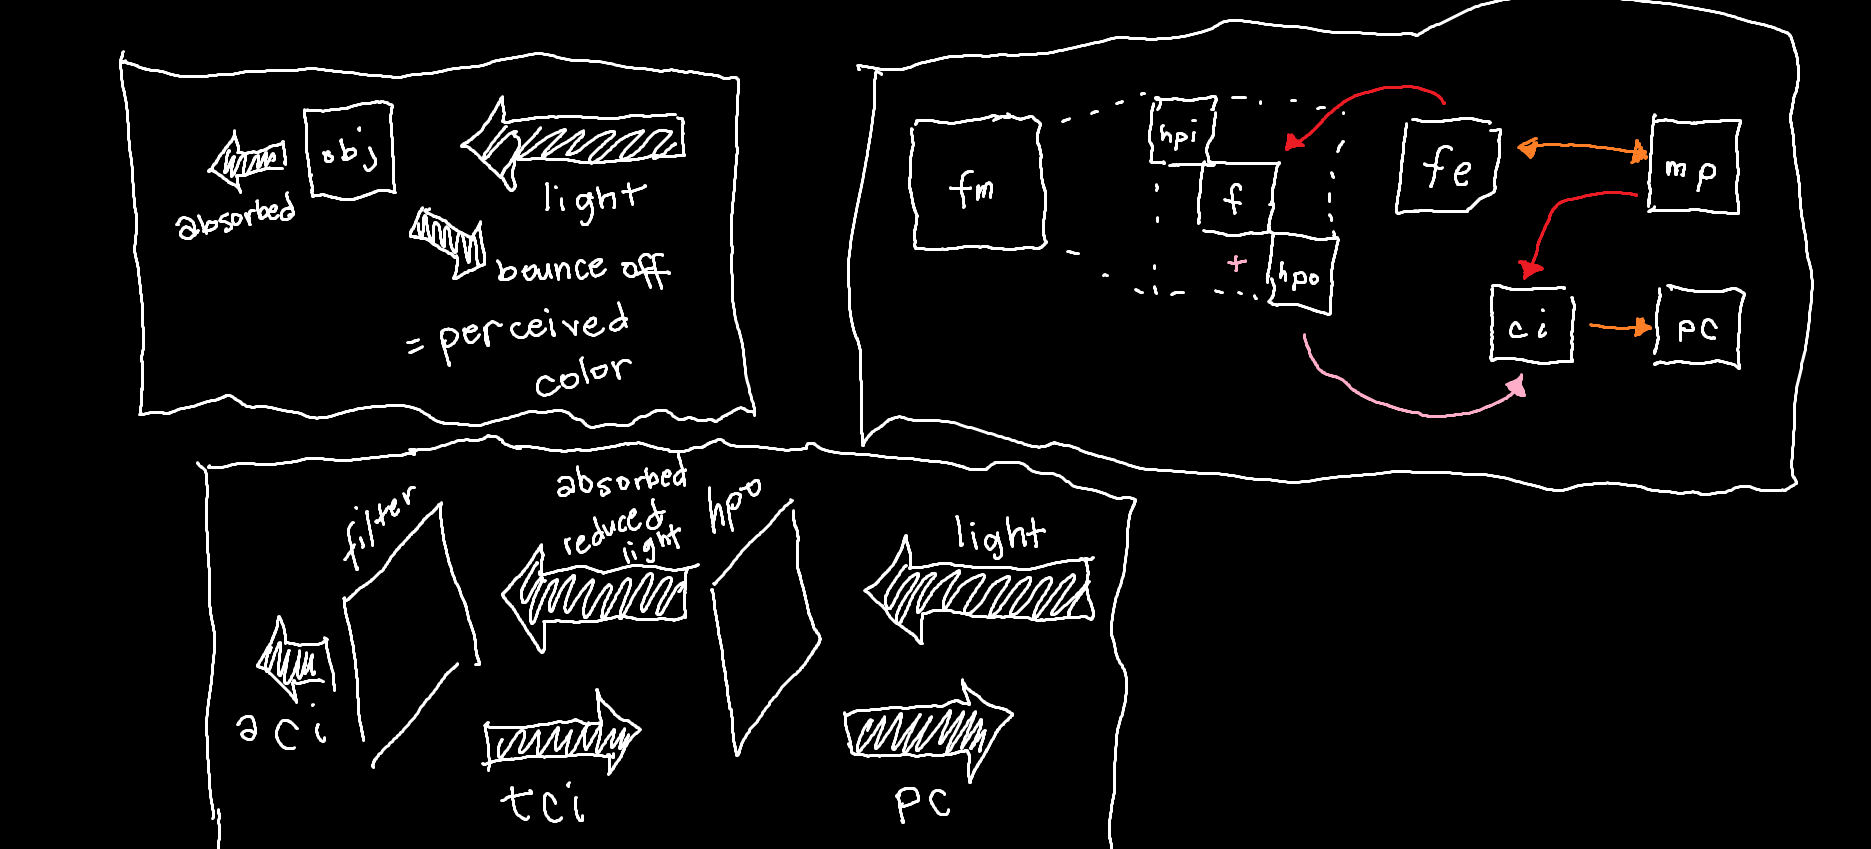 obj
light
absorbed
bounce off
= perceived
color
fm
hpi
f
+
hpo
fe
mp
ci
pc
filter
absorbed
reduced
light
hpo
light
aci
tci
pc